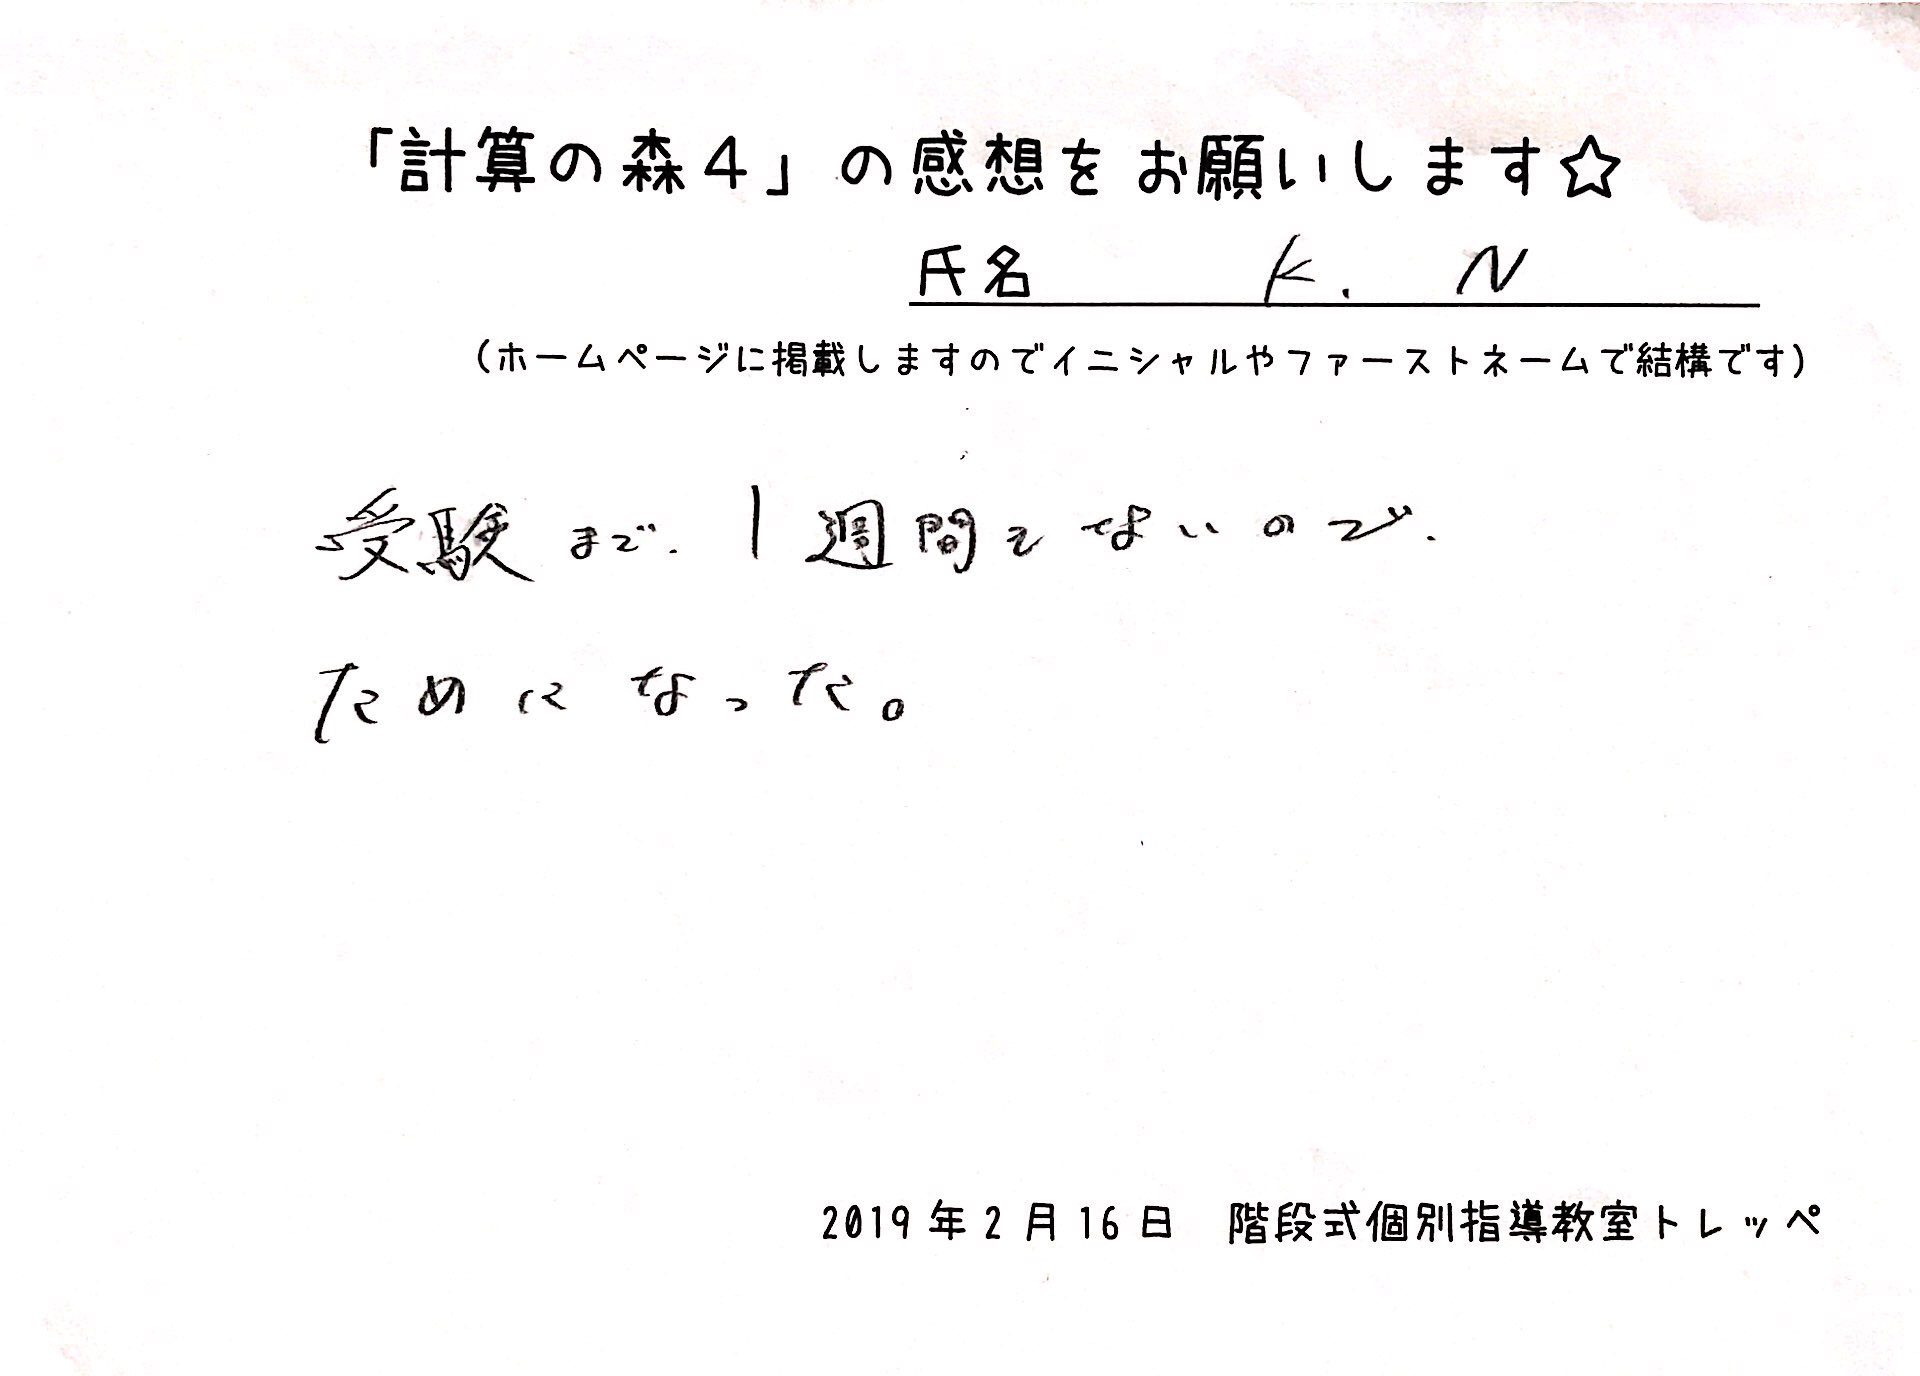 「計算の森4」の感想をお願いします☆
氏名 K. N
(ホームページに掲載しますのでイニシャルやファーストネームで結構です)
受験まで、1週間もないので、
ためになった。
2019年2月16日 階段式個別指導教室トレッペ